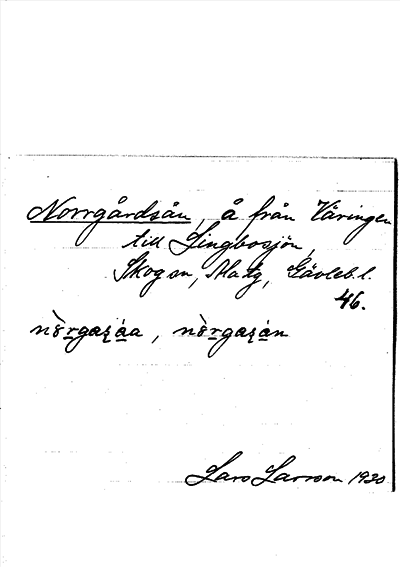 Norrgårdsån, å från Våringen
till Lingbosjön,
Skog sn, Ala tg, Gävleb. l.
46.
nò̀rgaʂáa, nò̀rgaʂán
Lars Larsson 1930